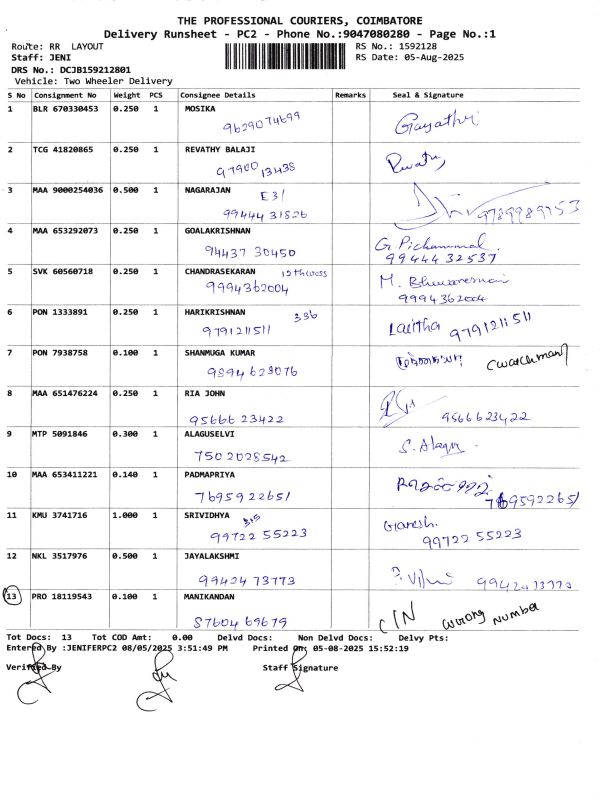 THE PROFESSIONAL COURIERS, COIMBATORE
Delivery Runsheet - PC2 - Phone No.:9047080280 - Page No.:1
Route: RR LAYOUT RS No.: 1592128
Staff: JENI RS Date: 05-Aug-2025
DRS No.: DCJB159212801
Vehicle: Two Wheeler Delivery
S No Consignment No Weight PCS Consignee Details Remarks Seal & Signature
1 BLR 670330453 0.250 1 MOSIKA
9629074699 Gayathri
2 TCG 41820865 0.250 1 REVATHY BALAJI
97900 13438 Revathy
3 MAA 9000254036 0.500 1 NAGARAJAN
E31
99444 31826 9789989953
4 MAA 653292073 0.250 1 GOALAKRISHNAN
94437 30450 G. Pichammal.
99444 32537
5 SVK 60560718 0.250 1 CHANDRASEKARAN 12th cross
9994362004 M. Bhuvaneswari
9994362004
6 PON 1333891 0.250 1 HARIKRISHNAN 336
9791211511 Lalitha 9791211511
7 PON 7938758 0.100 1 SHANMUGA KUMAR
9894628076 (watchman)
8 MAA 651476224 0.250 1 RIA JOHN
95666 23422 9566623422
9 MTP 5091846 0.300 1 ALAGUSELVI
7502028542 S. Alagu
10 MAA 653411221 0.140 1 PADMAPRIYA
7695922651 7695922651
11 KMU 3741716 1.000 1 SRIVIDHYA
315
99722 55223 Ganesh.
99722 55223
12 NKL 3517976 0.500 1 JAYALAKSHMI
99424 73773 99424 73773
13 PRO 18119543 0.100 1 MANIKANDAN
87604 69679 C/N wurong number
Tot Docs: 13 Tot COD Amt: 0.00 Delvd Docs: Non Delvd Docs: Delvy Pts:
Entered By :JENIFERPC2 08/05/2025 3:51:49 PM Printed On: 05-08-2025 15:52:19
Verified By Staff Signature